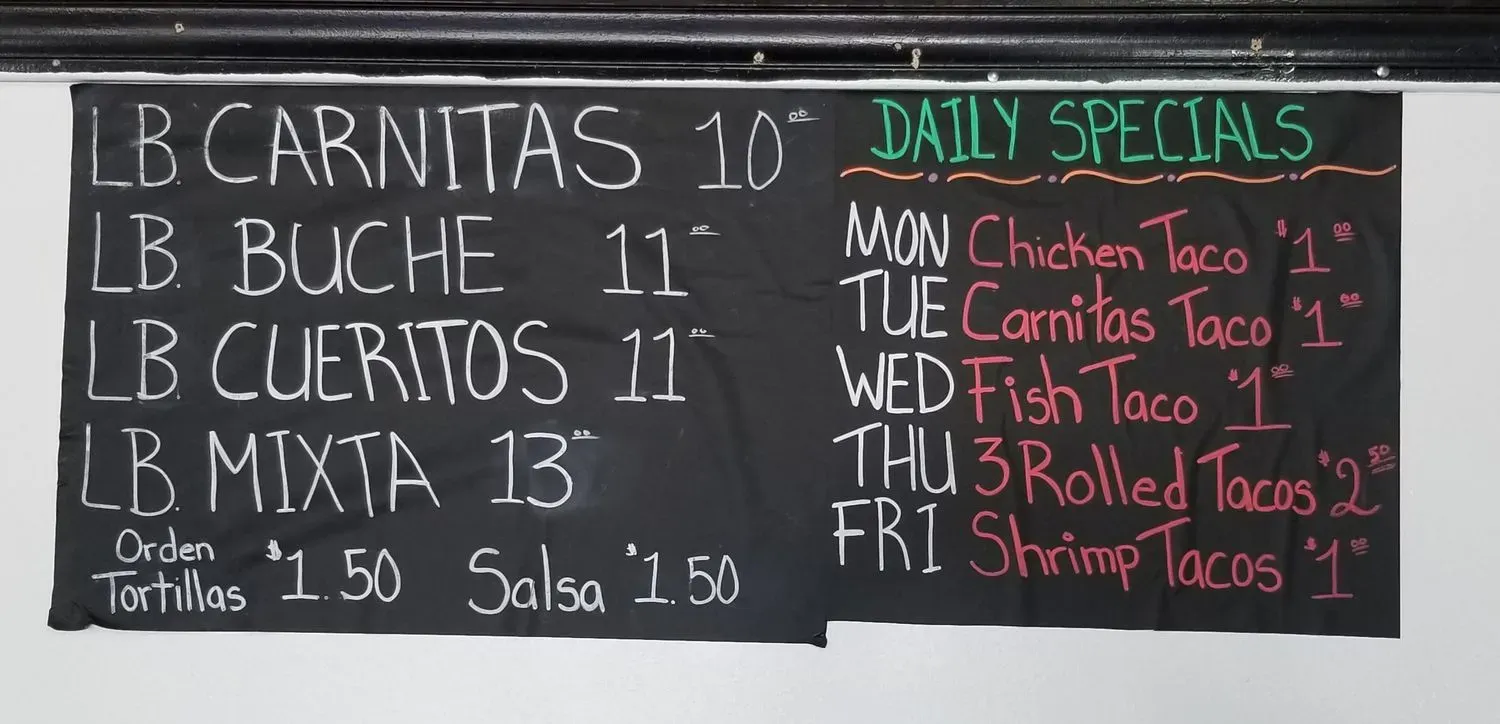 LB. CARNITAS 10.00
LB. BUCHE 11.00
LB. CUERITOS 11.00
LB. MIXTA 13.00
Orden
Tortillas $1.50 Salsa $1.50
DAILY SPECIALS
MON Chicken Taco $1.00
TUE Carnitas Taco $1.00
WED Fish Taco $1.00
THU 3 Rolled Tacos $2.50
FRI Shrimp Tacos $1.00